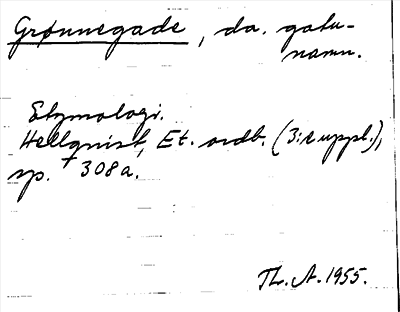 Grønnegade, da. gatu-
namn.
Etymologi.
Hellquist, Et. ordb. (3:e uppl.),
sp. 308a.
Th. A. 1955.